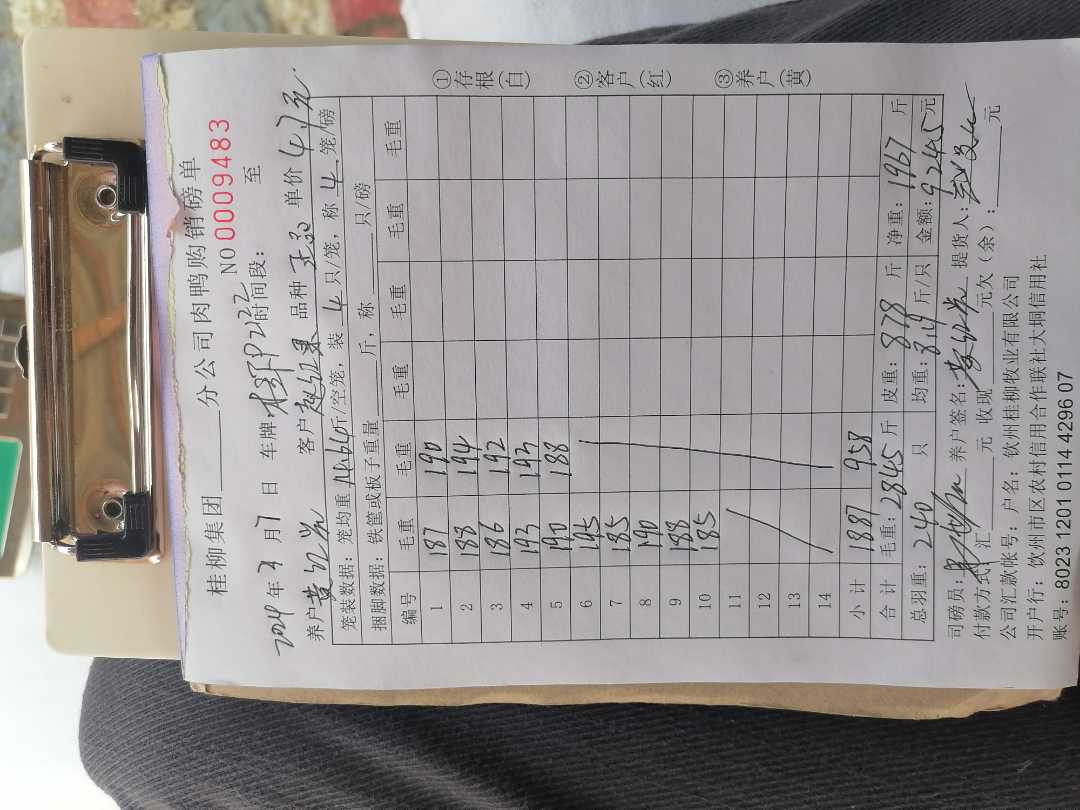 桂柳集团 分公司肉鸭购销磅单
NO 0009483
2024 年 3 月 7 日 车牌 P2122 时间段: 至
养户 黄 客户 赵 品种 单价 4.7元
笼装数据: 笼均重 14.64 斤/空笼, 装 4 只/笼, 称 4 笼/磅
捆脚数据: 铁筐或板子重量 斤, 称 只/磅
编号 毛重 毛重 毛重 毛重 毛重 毛重
1 187 190
2 188 194
3 186 192
4 193 192
5 190 188
6 195
7 185
8 190
9 188
10 185
11
12
13
14
小计 1887 958
合计 毛重: 2845 斤 皮重: 878 斤 净重: 1967 斤
总羽重: 240 只 均重: 8.19 斤/只 金额: 9245 元
司磅员: 养户签名: 黄 提货人:
付款方式: 汇 元 收现 元欠(余): 元
公司汇款帐号: 户名: 钦州桂柳牧业有限公司
开户行: 钦州市区农村信用合作联社大垌信用社
账号: 8023 1201 0114 4296 07
①存根(白)
②客户(红)
③养户(黄)